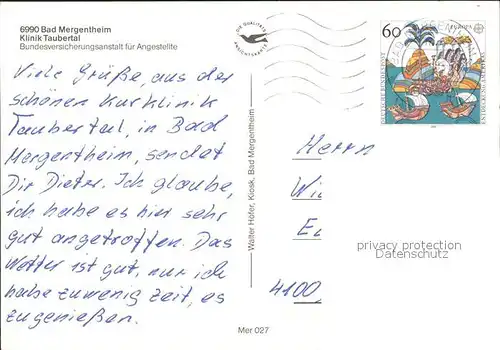 6990 Bad Mergentheim
Klinik Taubertal
Bundesversicherungsanstalt für Angestellte
Viele Grüße, aus der
schönen Kurklinik
Taubertal, in Bad
Mergentheim, sendet
Dir Dieter. Ich glaube,
ich habe es hier sehr
gut angetroffen. Das
Wetter ist gut, nur ich
habe zuwenig Zeit, es
zugenießen.
Mer 027
Walter Höfer, Kiosk, Bad Mergentheim
DIE QUALITÄTS
ANSICHTSKARTE
60
EUROPA
DEUTSCHE BUNDESPOST
Herrn
Wi
privacy protection
Datenschutz
4100